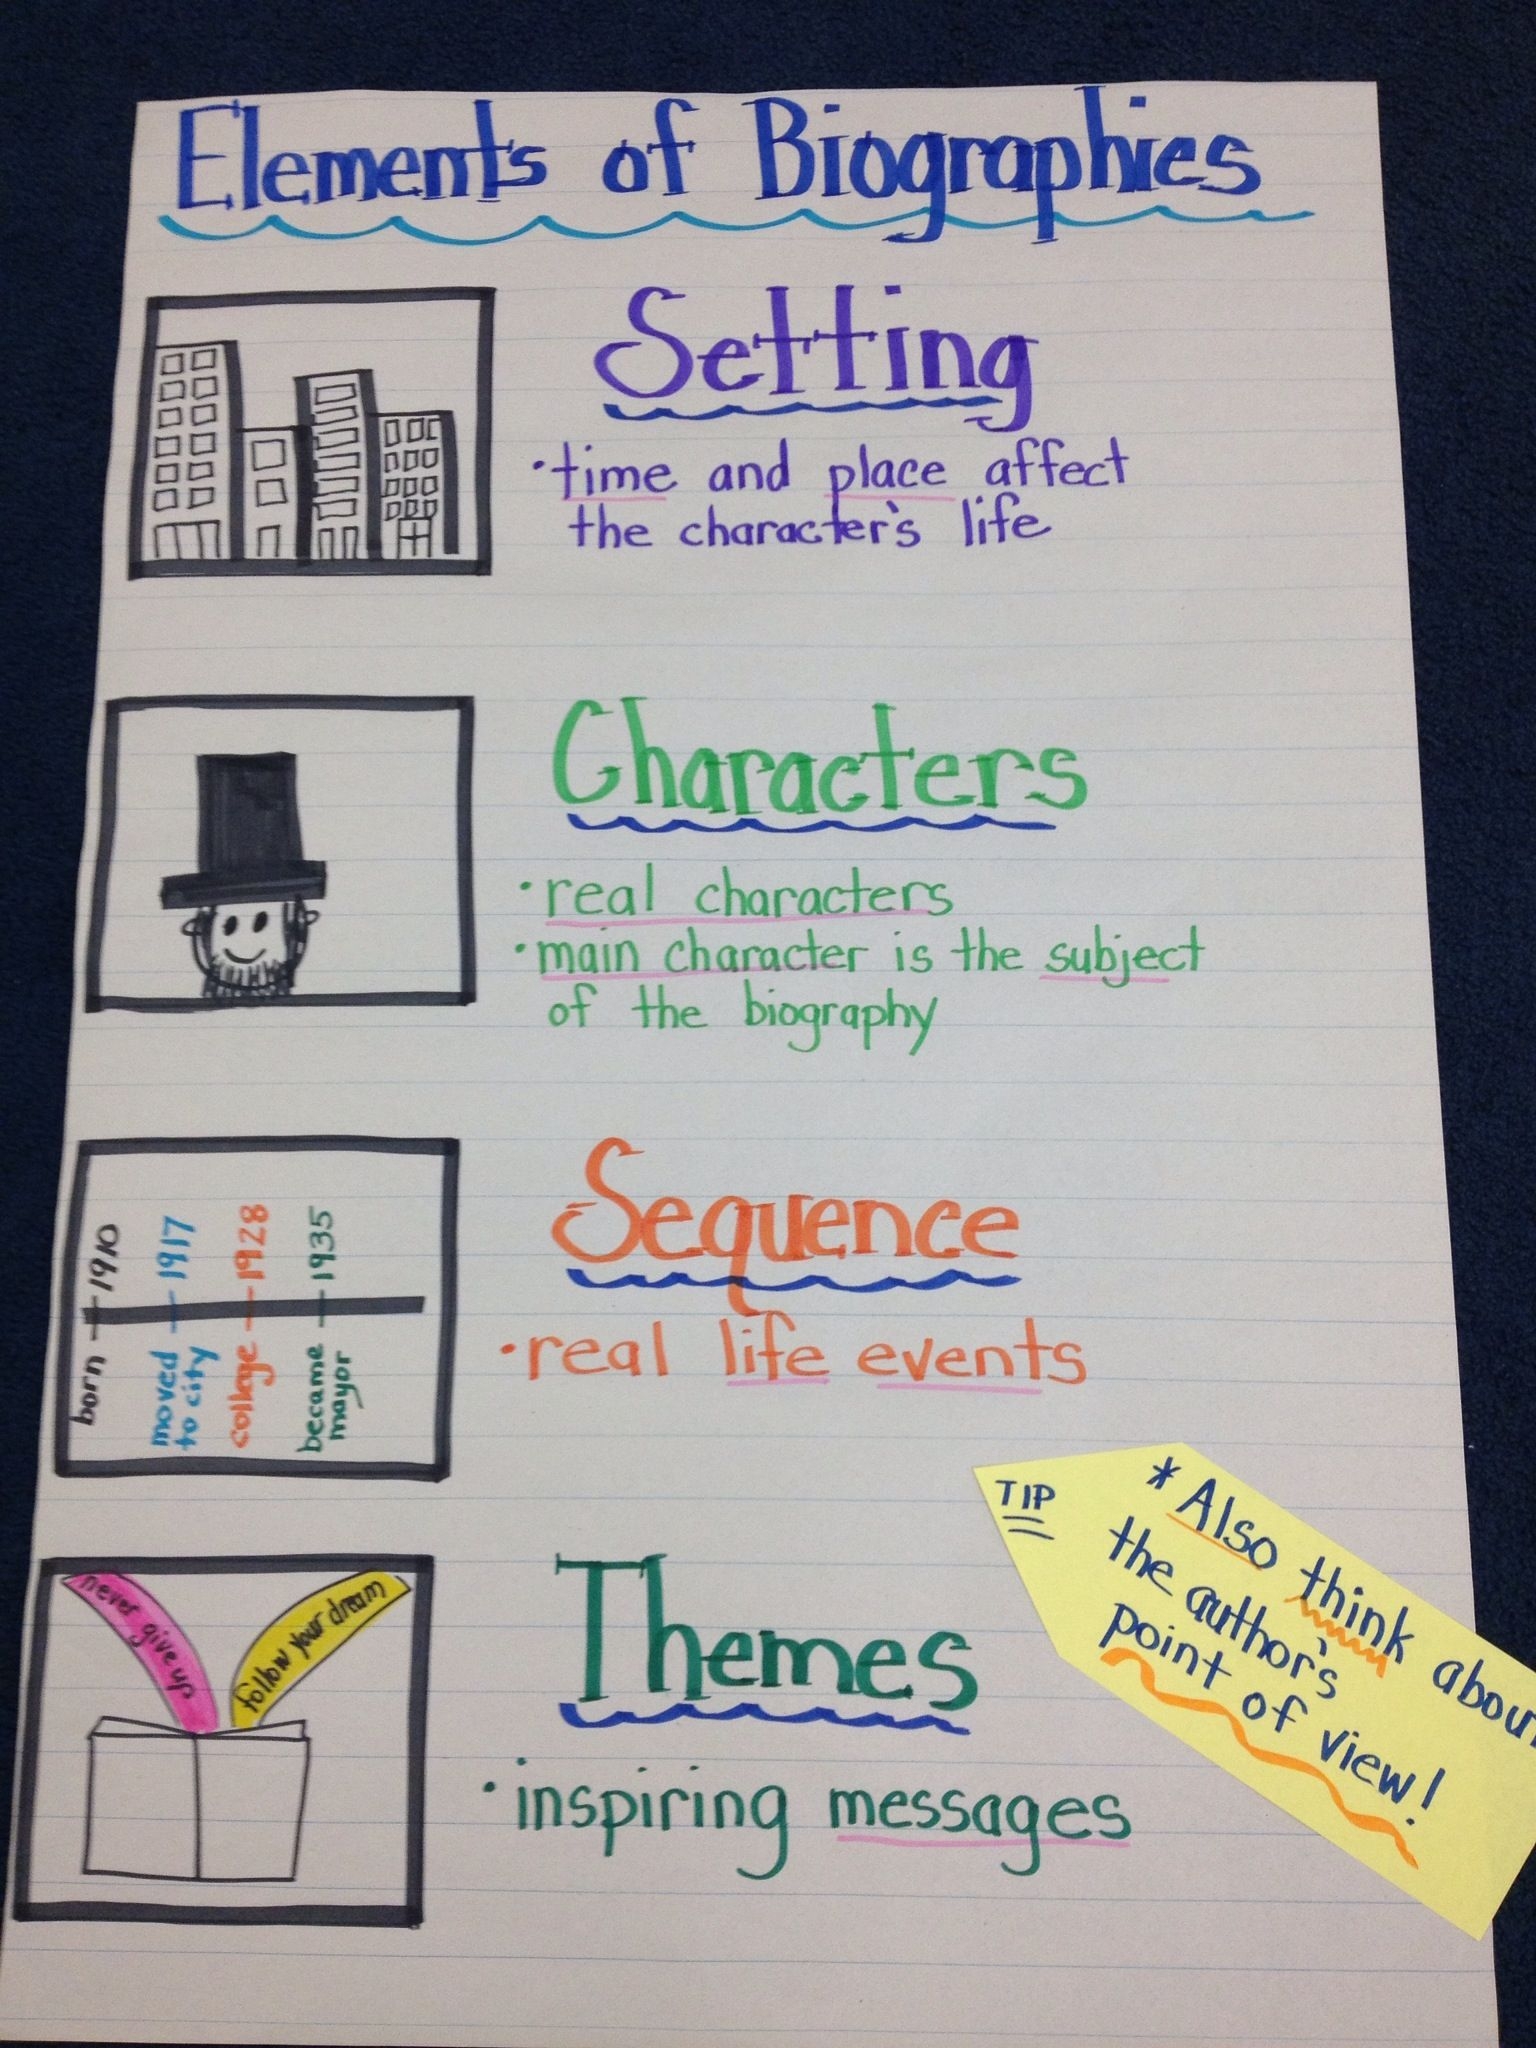 Elements of Biographies
Setting
•time and place affect
the character's life
Characters
•real characters
•main character is the subject
of the biography
born — 1910
moved — 1917
to city
college — 1928
became — 1935
mayor
Sequence
•real life events
never give up
follow your dream
Themes
•inspiring messages
TIP
*Also think abou
the author's
point of view!